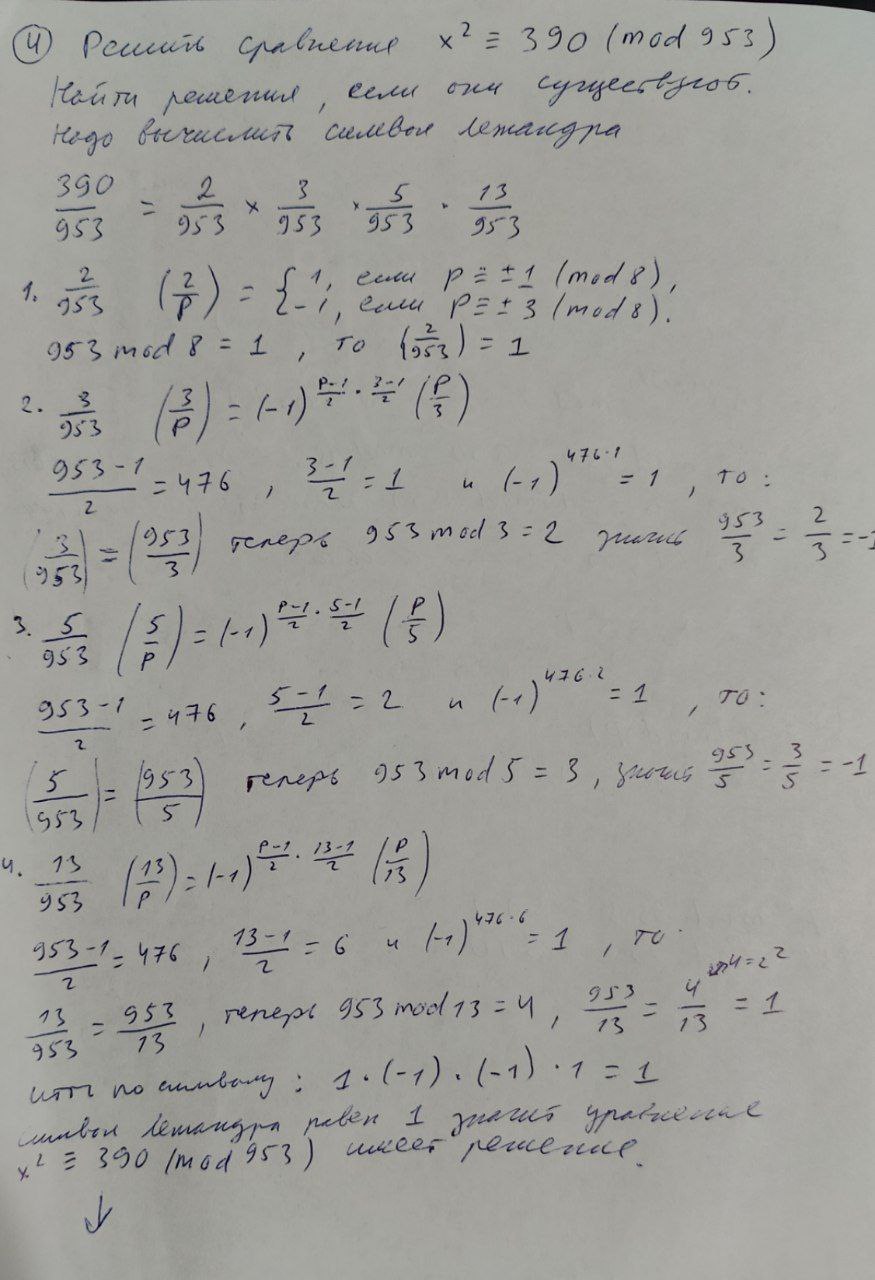 ④ Решить сравнение x² ≡ 390 (mod 953)
Найти решения, если они существуют.
Надо вычислить символ Лежандра
390/953 = 2/953 × 3/953 × 5/953 · 13/953
1. 2/953 (2/p) = { 1, если p ≡ ±1 (mod 8),
-1, если p ≡ ±3 (mod 8).
953 mod 8 = 1, то (2/953) = 1
2. 3/953 (3/p) = (-1)^(p-1/2 · 3-1/2) (p/3)
953-1/2 = 476, 3-1/2 = 1 и (-1)^(476·1) = 1, то:
(3/953) = (953/3) теперь 953 mod 3 = 2 значит 953/3 = 2/3 = -1
3. 5/953 (5/p) = (-1)^(p-1/2 · 5-1/2) (p/5)
953-1/2 = 476, 5-1/2 = 2 и (-1)^(476·2) = 1, то:
(5/953) = (953/5) теперь 953 mod 5 = 3, значит 953/5 = 3/5 = -1
4. 13/953 (13/p) = (-1)^(p-1/2 · 13-1/2) (p/13)
953-1/2 = 476, 13-1/2 = 6 и (-1)^(476·6) = 1, то
13/953 = 953/13, теперь 953 mod 13 = 4, 953/13 = 4/13 = 1 4=2²
итог по символу: 1·(-1)·(-1)·1 = 1
символ Лежандра равен 1 значит уравнение
x² ≡ 390 (mod 953) имеет решение.
↓